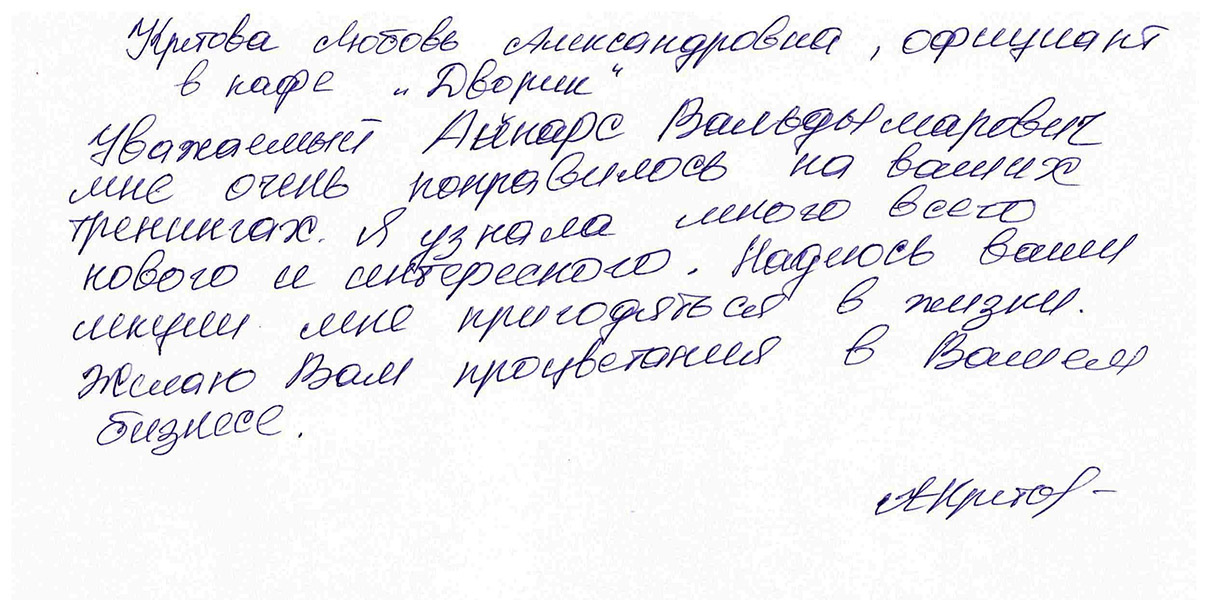 Кртова Любовь Александровна, официант
в кафе "Дворик"
Уважаемый Айнарс Вальдымарович
мне очень понравилось на ваших
тренингах. Я узнала много всего
нового и интересного. Надеюсь ваши
лекции мне пригодяться в жизни.
Желаю Вам процветания в Вашем
бизнесе.